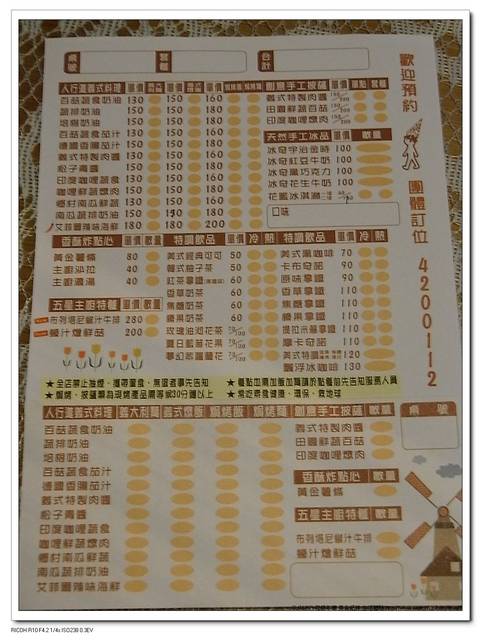 桌號 套餐 合計
歡迎預約 團體訂位 4200112
人行道義式料理 單價
百菇蔬食奶油 130 150 160
蔬排奶油 150 150 180
培根奶油 150 150 180
百菇蔬食茄汁 130 150 160
德國香腸茄汁 150 150 180
義式特製肉醬 150 150 180
松子青醬 150 150 180
印度咖哩蔬食 130 150 160
咖哩鮮蔬燉肉 150 150 180
鄉村南瓜鮮蔬 150 150 180
南瓜蔬排奶油 150 150 180
艾菲爾辣味海鮮 180 180 200
創意手工披薩 單價 單點 套餐
義式特製肉醬
田園鮮蔬百菇
印度咖哩燉肉
天然手工冰品 單價 數量
冰奇宇治金時 100
冰奇紅豆牛奶 100
冰奇黑巧克力 100
冰奇花生牛奶 100
花藍冰淇淋
口味
香酥炸點心 單價 數量
黃金薯條 80
主廚沙拉 40
主廚濃湯 40
五星主廚特餐 單價 數量
布列塔尼嫩汁牛排 280
嫩汁燉鮮菇 200
特調飲品 單價 冷 熱
美式經典可可 50
韓式柚子茶 50
紅茶拿鐵 60
香草奶茶 60
焦糖奶茶 60
榛果奶茶 60
玫瑰油切花茶
夏日藍莓果茶
夢幻紫羅蘭花
特調飲品 單價 冷 熱
美式黑咖啡 70
卡布奇諾 90
原味拿鐵 90
香草拿鐵 110
焦糖拿鐵 110
榛果拿鐵 110
提拉米蘇拿鐵 110
摩卡奇諾 110
美式特調 120
飄浮冰咖啡 130
★全店禁止抽煙、攜帶葷食、無限者事先告知
★餐點如需加飯加麵請於點餐前先告知服務人員
★焗烤、披薩類為現烤產品需等候30分鐘以上
★常吃素食健康、環保、救地球
人行道義式料理 義大利麵 義式燉飯 焗烤飯 焗烤麵
百菇蔬食奶油
蔬排奶油
培根奶油
百菇蔬食茄汁
德國香腸茄汁
義式特製肉醬
松子青醬
印度咖哩蔬食
咖哩鮮蔬燉肉
鄉村南瓜鮮蔬
南瓜蔬排奶油
艾菲爾辣味海鮮
創意手工披薩 數量
義式特製肉醬
田園鮮蔬百菇
印度咖哩燉肉
香酥炸點心 數量
黃金薯條
五星主廚特餐 數量
布列塔尼嫩汁牛排
嫩汁燉鮮菇
桌 號
RICOH R10 F4.2 1/4s ISO238 0.3EV